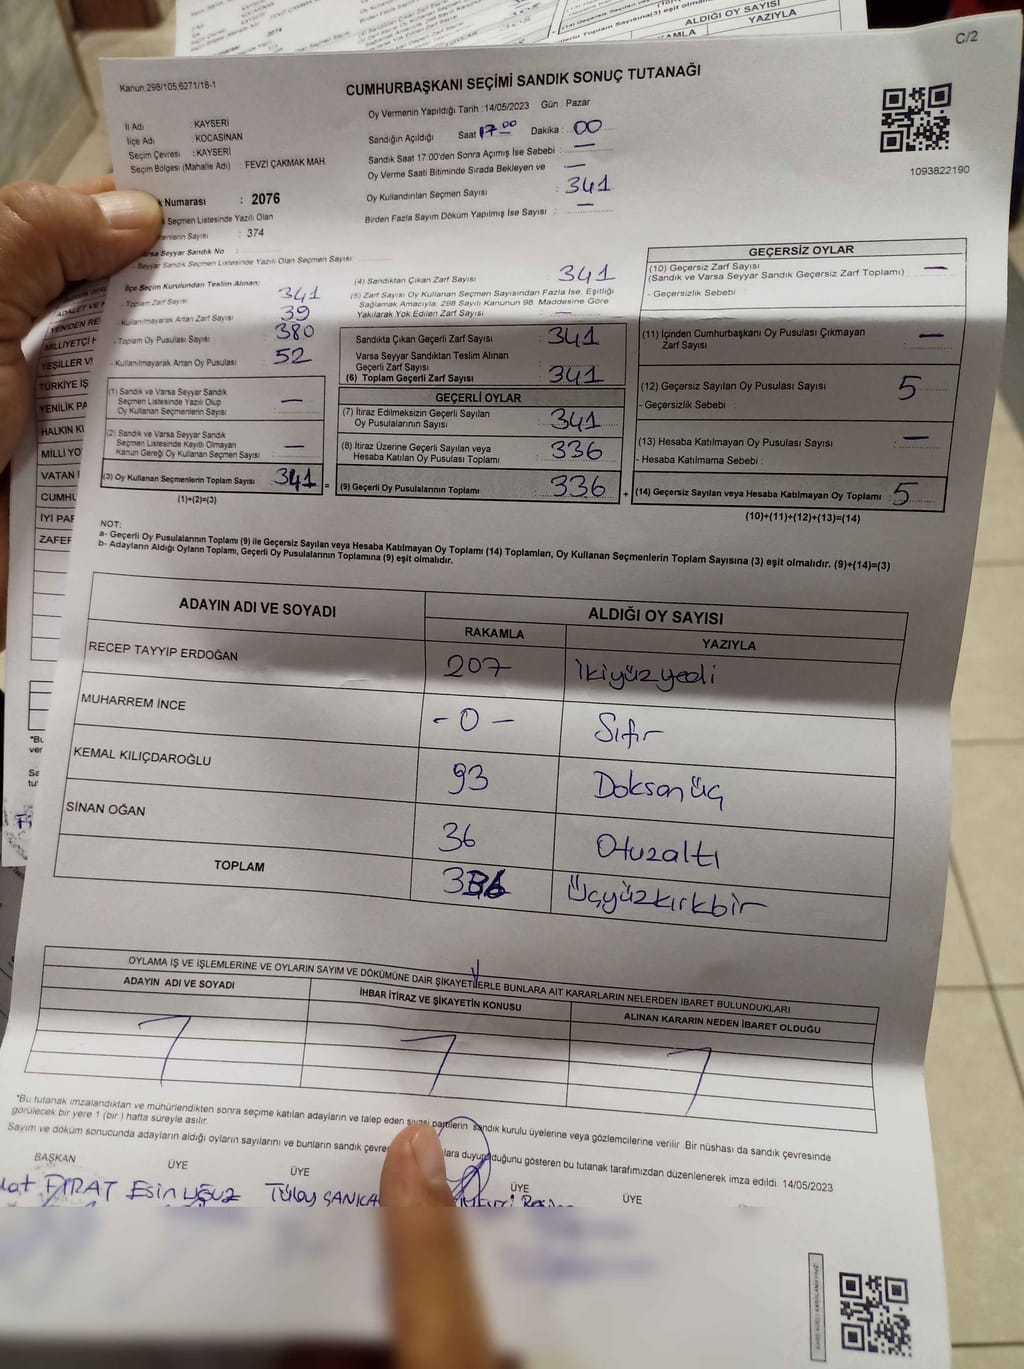 C/2
Kanun:298/105;6271/18-1
CUMHURBAŞKANI SEÇİMİ SANDIK SONUÇ TUTANAĞI
İl Adı : KAYSERİ
İlçe Adı : KOCASİNAN
Seçim Çevresi : KAYSERİ
Seçim Bölgesi (Mahalle Adı) : FEVZI ÇAKMAK MAH
Numarası : 2076
Seçmen Listesinde Yazılı Olan
Sayısı : 374
Seyyar Sandık No :
- Seyyar Sandık Seçmen Listesinde Yazılı Olan Seçmen Sayısı
Oy Vermenin Yapıldığı Tarih : 14/05/2023 Gün : Pazar
Sandığın Açıldığı Saat 17.00 Dakika : 00
Sandık Saat 17:00'den Sonra Açımış İse Sebebi : —
Oy Verme Saati Bitiminde Sırada Bekleyen ve —
Oy Kullandırılan Seçmen Sayısı : 341
Birden Fazla Sayım Döküm Yapılmış İse Sayısı : —
1093822190
İlçe Seçim Kurulundan Teslim Alınan:
- Toplam Zarf Sayısı 341
- Kullanılmayarak Artan Zarf Sayısı 39
- Toplam Oy Pusulası Sayısı 380
- Kullanılmayarak Artan Oy Pusulası 52
(1) Sandık ve Varsa Seyyar Sandık
Seçmen Listesinde Yazılı Olup
Oy Kullanan Seçmenlerin Sayısı —
(2) Sandık ve Varsa Seyyar Sandık
Seçmen Listesinde Kayıtlı Olmayan
Kanun Gereği Oy Kullanan Seçmen Sayısı —
(3) Oy Kullanan Seçmenlerin Toplam Sayısı 341 =
(1)+(2)=(3)
(4) Sandıktan Çıkan Zarf Sayısı : 341
(5) Zarf Sayısı Oy Kullanan Seçmen Sayısından Fazla İse, Eşitliği
Sağlamak Amacıyla, 298 Sayılı Kanunun 98. Maddesine Göre
Yakılarak Yok Edilen Zarf Sayısı : —
Sandıkta Çıkan Geçerli Zarf Sayısı : 341
Varsa Seyyar Sandıktan Teslim Alınan
Geçerli Zarf Sayısı :
(6) Toplam Geçerli Zarf Sayısı : 341
GEÇERLİ OYLAR
(7) İtiraz Edilmeksizin Geçerli Sayılan
Oy Pusulalarının Sayısı : 341
(8) İtiraz Üzerine Geçerli Sayılan veya
Hesaba Katılan Oy Pusulası Toplamı : 336
(9) Geçerli Oy Pusulalarının Toplamı : 336 +
GEÇERSİZ OYLAR
(10) Geçersiz Zarf Sayısı
(Sandık ve Varsa Seyyar Sandık Geçersiz Zarf Toplamı) : —
- Geçersizlik Sebebi :
(11) İçinden Cumhurbaşkanı Oy Pusulası Çıkmayan
Zarf Sayısı : —
(12) Geçersiz Sayılan Oy Pusulası Sayısı : 5
- Geçersizlik Sebebi :
(13) Hesaba Katılmayan Oy Pusulası Sayısı : —
- Hesaba Katılmama Sebebi :
(14) Geçersiz Sayılan veya Hesaba Katılmayan Oy Toplamı : 5
(10)+(11)+(12)+(13)=(14)
NOT:
a- Geçerli Oy Pusulalarının Toplamı (9) ile Geçersiz Sayılan veya Hesaba Katılmayan Oy Toplamı (14) Toplamları, Oy Kullanan Seçmenlerin Toplam Sayısına (3) eşit olmalıdır. (9)+(14)=(3)
b- Adayların Aldığı Oyların Toplamı, Geçerli Oy Pusulalarının Toplamına (9) eşit olmalıdır.
ADAYIN ADI VE SOYADI ALDIĞI OY SAYISI
RAKAMLA YAZIYLA
RECEP TAYYİP ERDOĞAN 207 İkiyüzyedi
MUHARREM İNCE - 0 - Sıfır
KEMAL KILIÇDAROĞLU 93 Doksanüç
SİNAN OĞAN 36 Otuzaltı
TOPLAM 336 Üçyüzkırkbir
OYLAMA İŞ VE İŞLEMLERİNE VE OYLARIN SAYIM VE DÖKÜMÜNE DAİR ŞİKAYETLERLE BUNLARA AİT KARARLARIN NELERDEN İBARET BULUNDUKLARI
ADAYIN ADI VE SOYADI İHBAR İTİRAZ VE ŞİKAYETİN KONUSU ALINAN KARARIN NEDEN İBARET OLDUĞU
*Bu tutanak imzalandıktan ve mühürlendikten sonra seçime katılan adayların ve talep eden siyasi partilerin sandık kurulu üyelerine veya gözlemcilerine verilir. Bir nüshası da sandık çevresinde
görülecek bir yere 1 (bir) hafta süreyle asılır.
Sayım ve döküm sonucunda adayların aldığı oyların sayılarını ve bunların sandık duyurulduğunu gösteren bu tutanak tarafımızdan düzenlenerek imza edildi. 14/05/2023
BAŞKAN ÜYE ÜYE ÜYE ÜYE
FIRAT Esin Tülay
YENİDEN RE
MİLLİYETÇİ H
YEŞİLLER V
TÜRKİYE İŞ
YENİLİK PA
HALKIN KU
MİLLİ YO
VATAN
CUMHU
İYİ PAR
ZAFER
ALDIĞI OY SAYISI
YAZIYLA